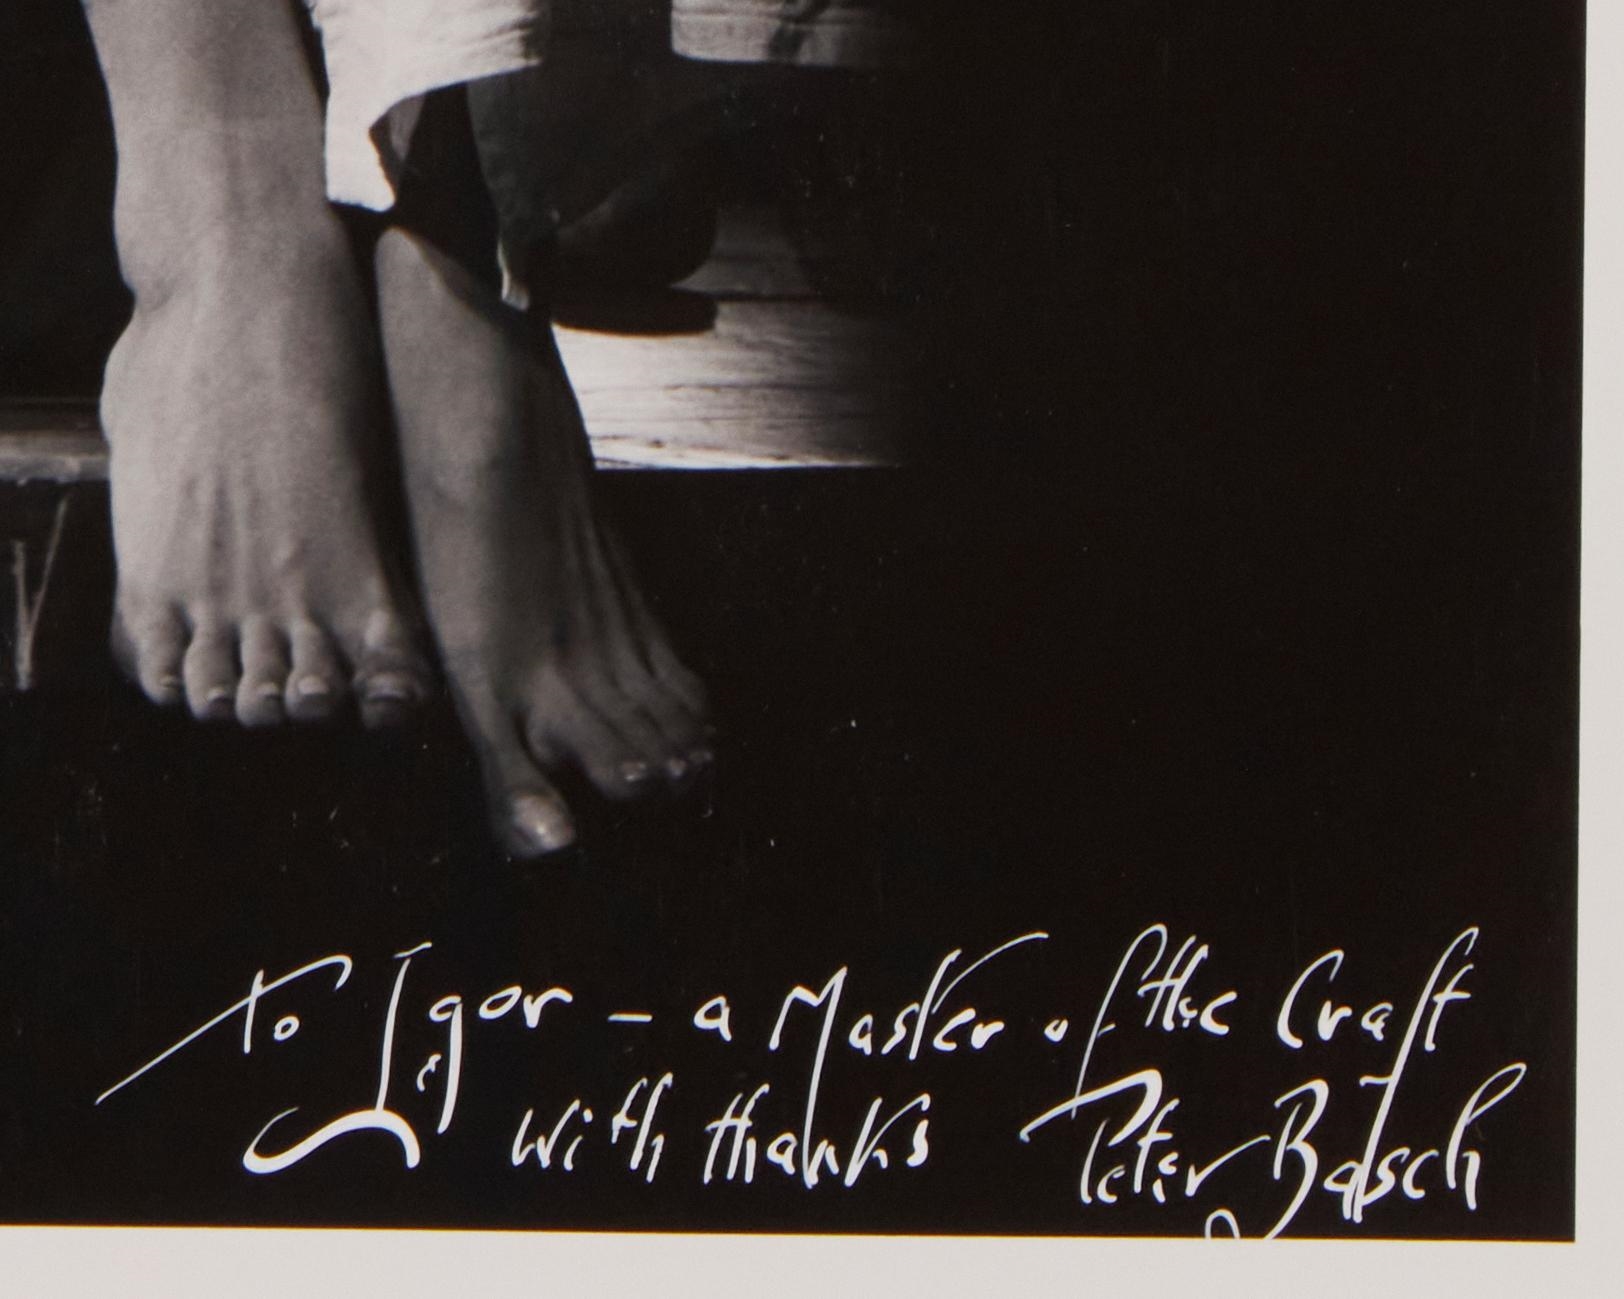 To Igor – a Master of the Craft
with thanks Peter Basch